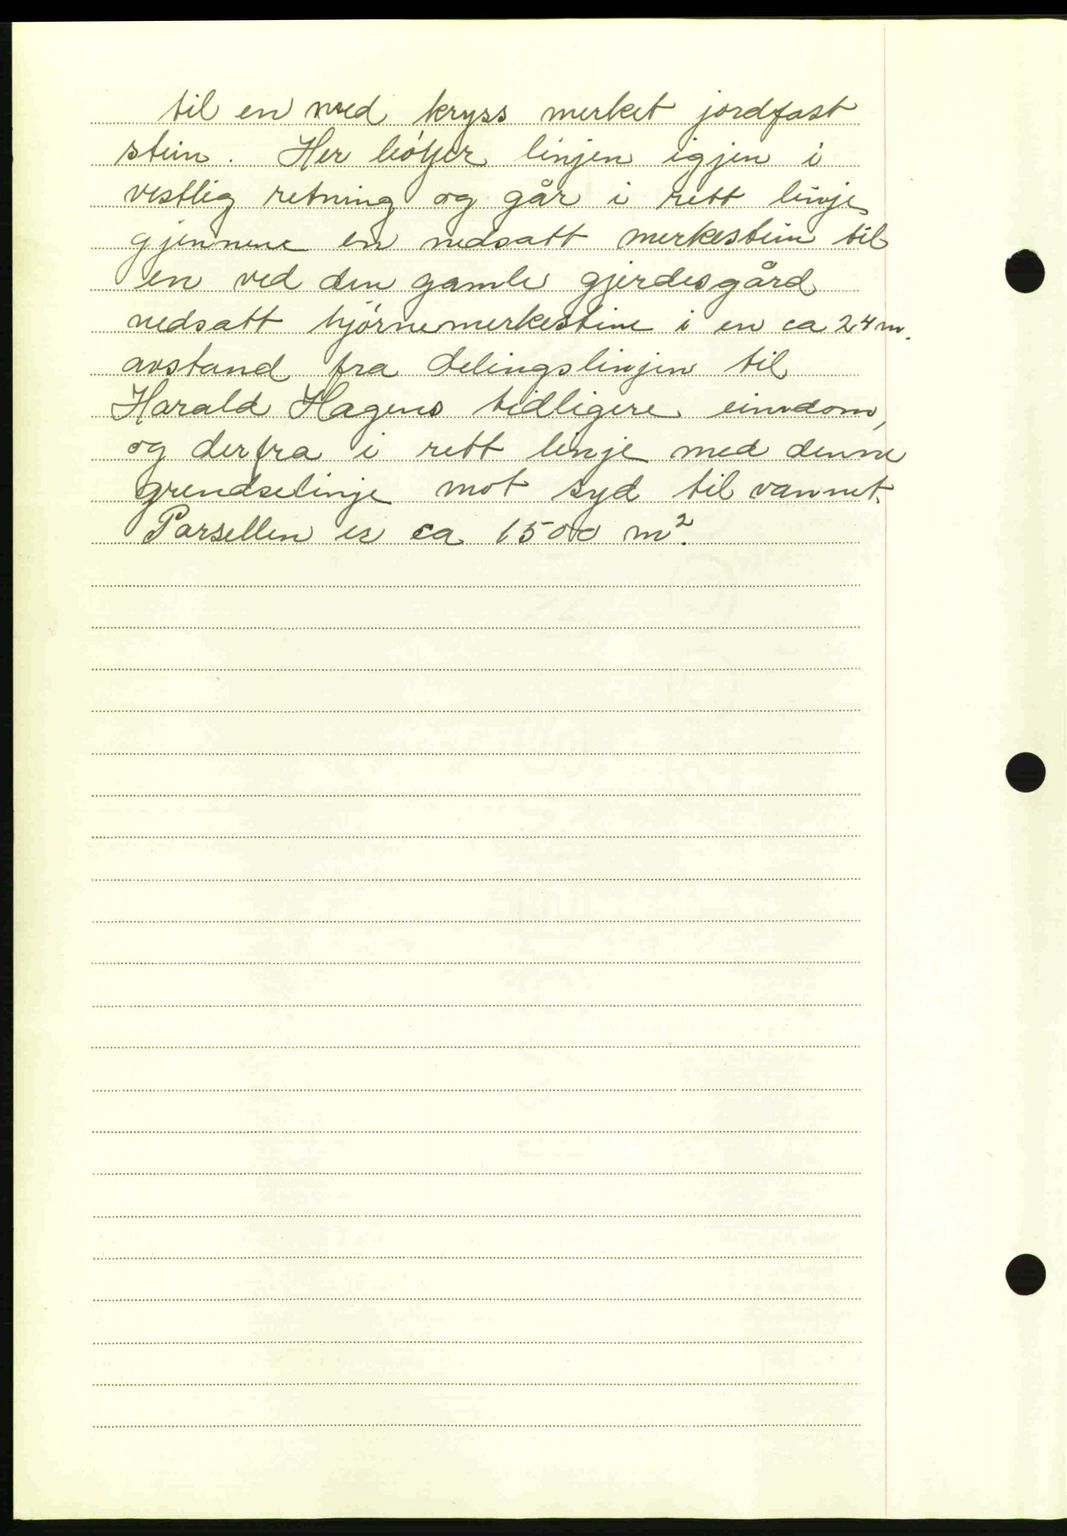 til en med kryss merket jordfast
stein. Her bøyer linjen igjen i
vestlig retning og går i rett linje
gjennem en nedsatt merkestein til
en ved den gamle gjerdesgård
nedsatt hjørnemerkestein i en ca 24 m.
avstand fra delingslinjen til
Harald Hagens tidligere eiendom,
og derfra i rett linje med denne
grendselinje mot syd til vannet.
Parsellen er ca 1500 m².